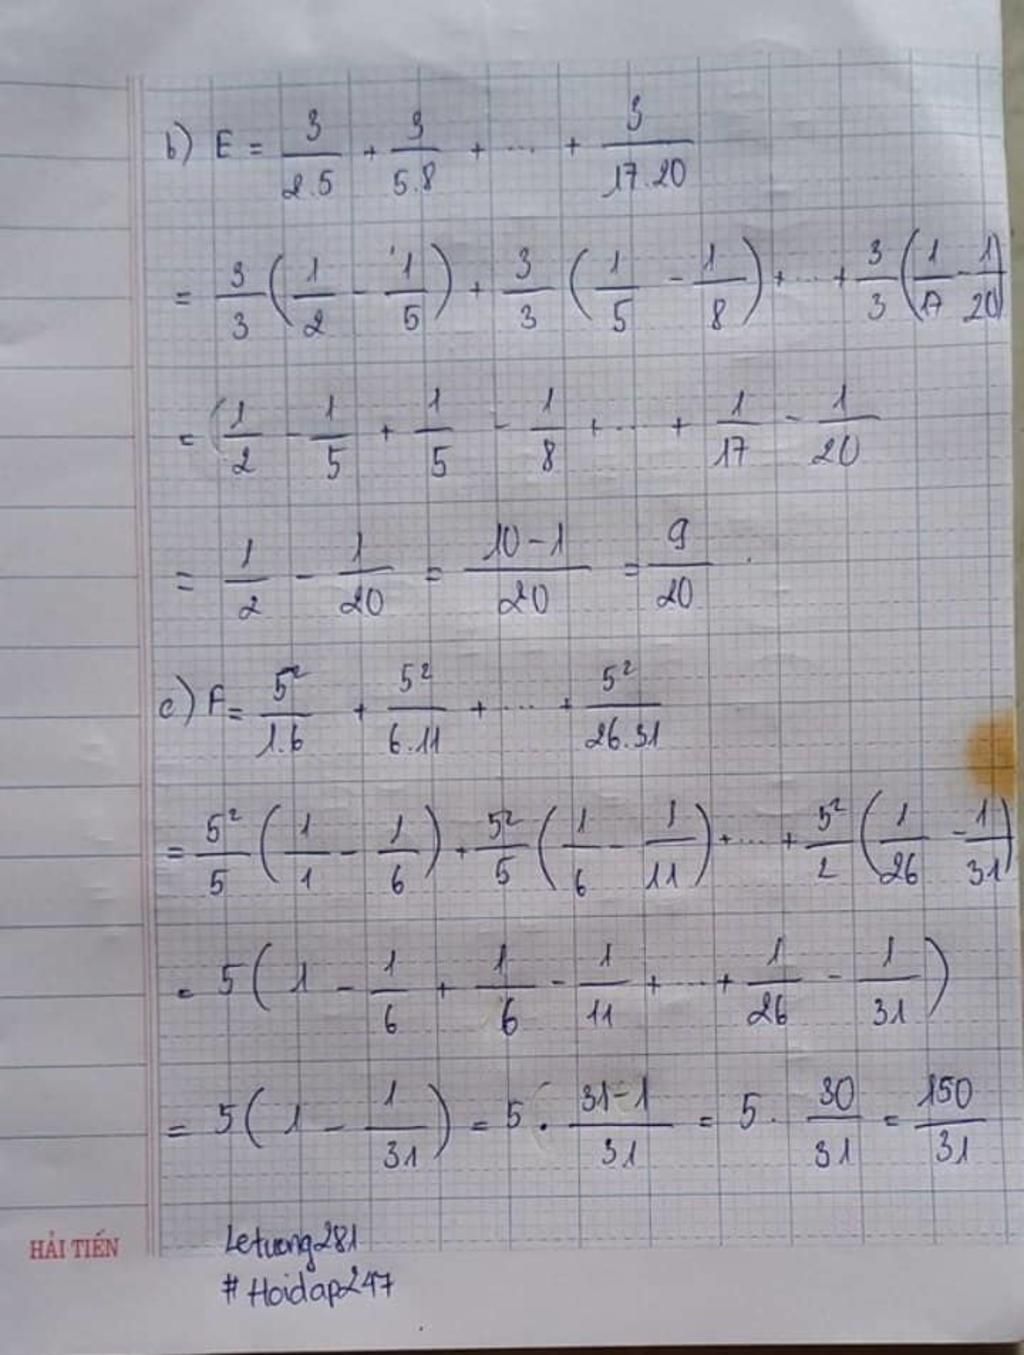 b) E = 3/2.5 + 3/5.8 + ... + 3/17.20
= 3/3 (1/2 - 1/5) + 3/3 (1/5 - 1/8) + ... + 3/3 (1/17 - 1/20)
= (1/2 - 1/5 + 1/5 - 1/8 + ... + 1/17 - 1/20
= 1/2 - 1/20 = 10-1/20 = 9/20 .
c) F = 5²/1.6 + 5²/6.11 + ... + 5²/26.31
= 5²/5 (1/1 - 1/6) + 5²/5 (1/6 - 1/11) + ... + 5²/2 (1/26 - 1/31)
= 5 (1 - 1/6 + 1/6 - 1/11 + ... + 1/26 - 1/31)
= 5 (1 - 1/31) = 5 . 31-1/31 = 5 . 30/31 = 150/31
HẢI TIẾN
Letuong281
# Hoidap247